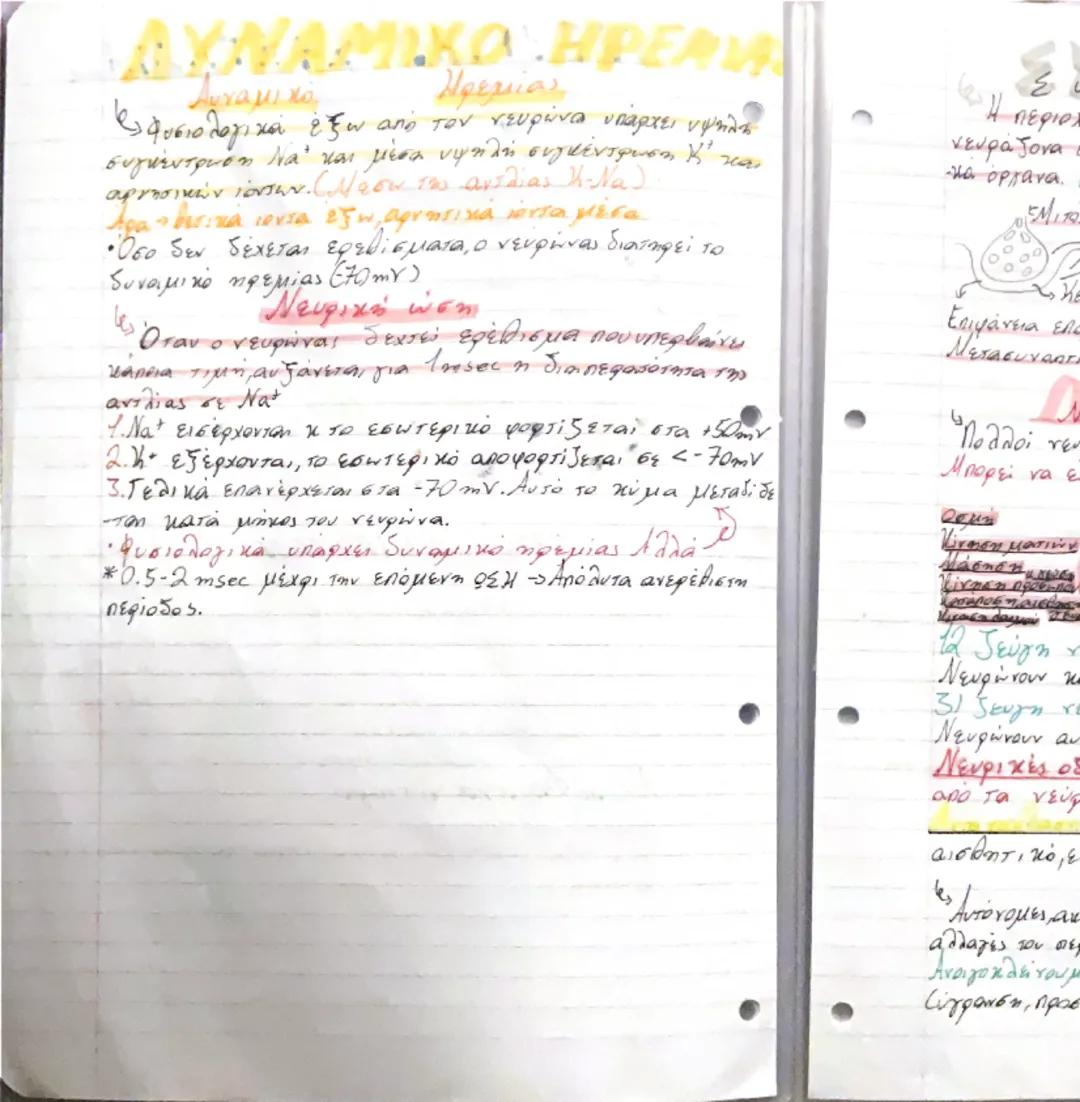 ΔΥΝΑΜΙΚΟ ΗΡΕΜΙΑΣ
Δυναμικό Ηρεμίας
Φυσιολογικά έξω από τον νευρώνα υπάρχει υψηλή
συγκέντρωση Na⁺ και μέσα υψηλή συγκέντρωση K⁺ και
αρνητικών ιόντων. (Μέσω της αντλίας K-Na)
Άρα → θετικά ιόντα έξω, αρνητικά ιόντα μέσα
•Όσο δεν δέχεται ερεθίσματα, ο νευρώνας διατηρεί το
δυναμικό ηρεμίας (-70mV)
Νευρική ώση
Όταν ο νευρώνας δεχτεί ερέθισμα που υπερβαίνει
κάποια τιμή, αυξάνεται για 1msec η διαπερατότητα της
αντλίας σε Na⁺
1.Na⁺ εισέρχονται κ το εσωτερικό φορτίζεται στα +50mV
2.K⁺ εξέρχονται, το εσωτερικό αποφορτίζεται σε <-70mV
3.Τελικά επανέρχεται στα -70mV. Αυτό το κύμα μεταδίδε
-ται κατά μήκος του νευρώνα.
•Φυσιολογικά υπάρχει δυναμικό ηρεμίας Αλλά
*0.5-2 msec μέχρι την επόμενη ΩΣΗ -> Απόλυτα ανερέθιστη
περίοδος.
Η περιοχ
νευράξονα
-κά όργανα.
Μιτο
Επιφάνεια επα
Μετασυναπτι
Πολλοί νευ
Μπορεί να ε
Οσμή
Κίνηση ματιών
Μάσηση
Κίνηση προσώπο
12 ζεύγη ν
Νευρώνουν κ
31 ζευγη νε
Νευρώνουν αυ
Νευρικές οδ
από τα νεύρ
αισθητικό, ε
Αυτόνομες, ακ
αλλαγές του περ
Ανοιγοκλείνουμ